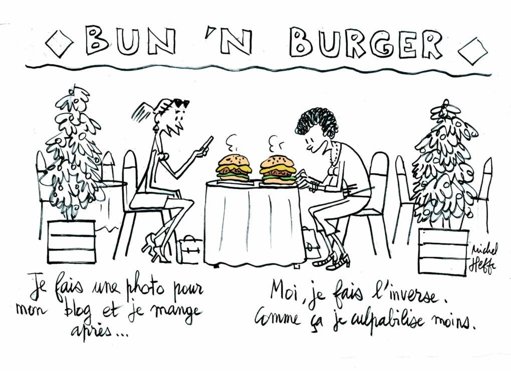 BUN 'N BURGER
Je fais une photo pour
mon blog et je mange
après...
Moi, je fais l'inverse.
Comme ça je culpabilise moins.
Michel
Heffe